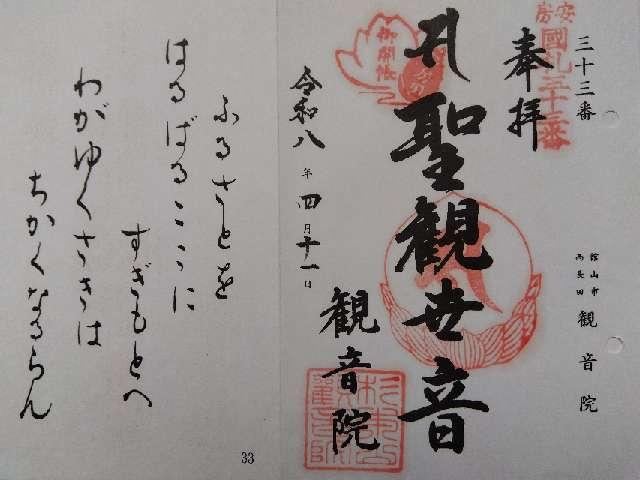 安房
國札三十三番
三十三番
奉拝
館山市
西長田
観音院
聖観世音
御開帳
令和八年四月十一日
観音院
ふるさとを
はるばるここに
すぎもとへ
わがゆくさきは
ちかくなるらん
33